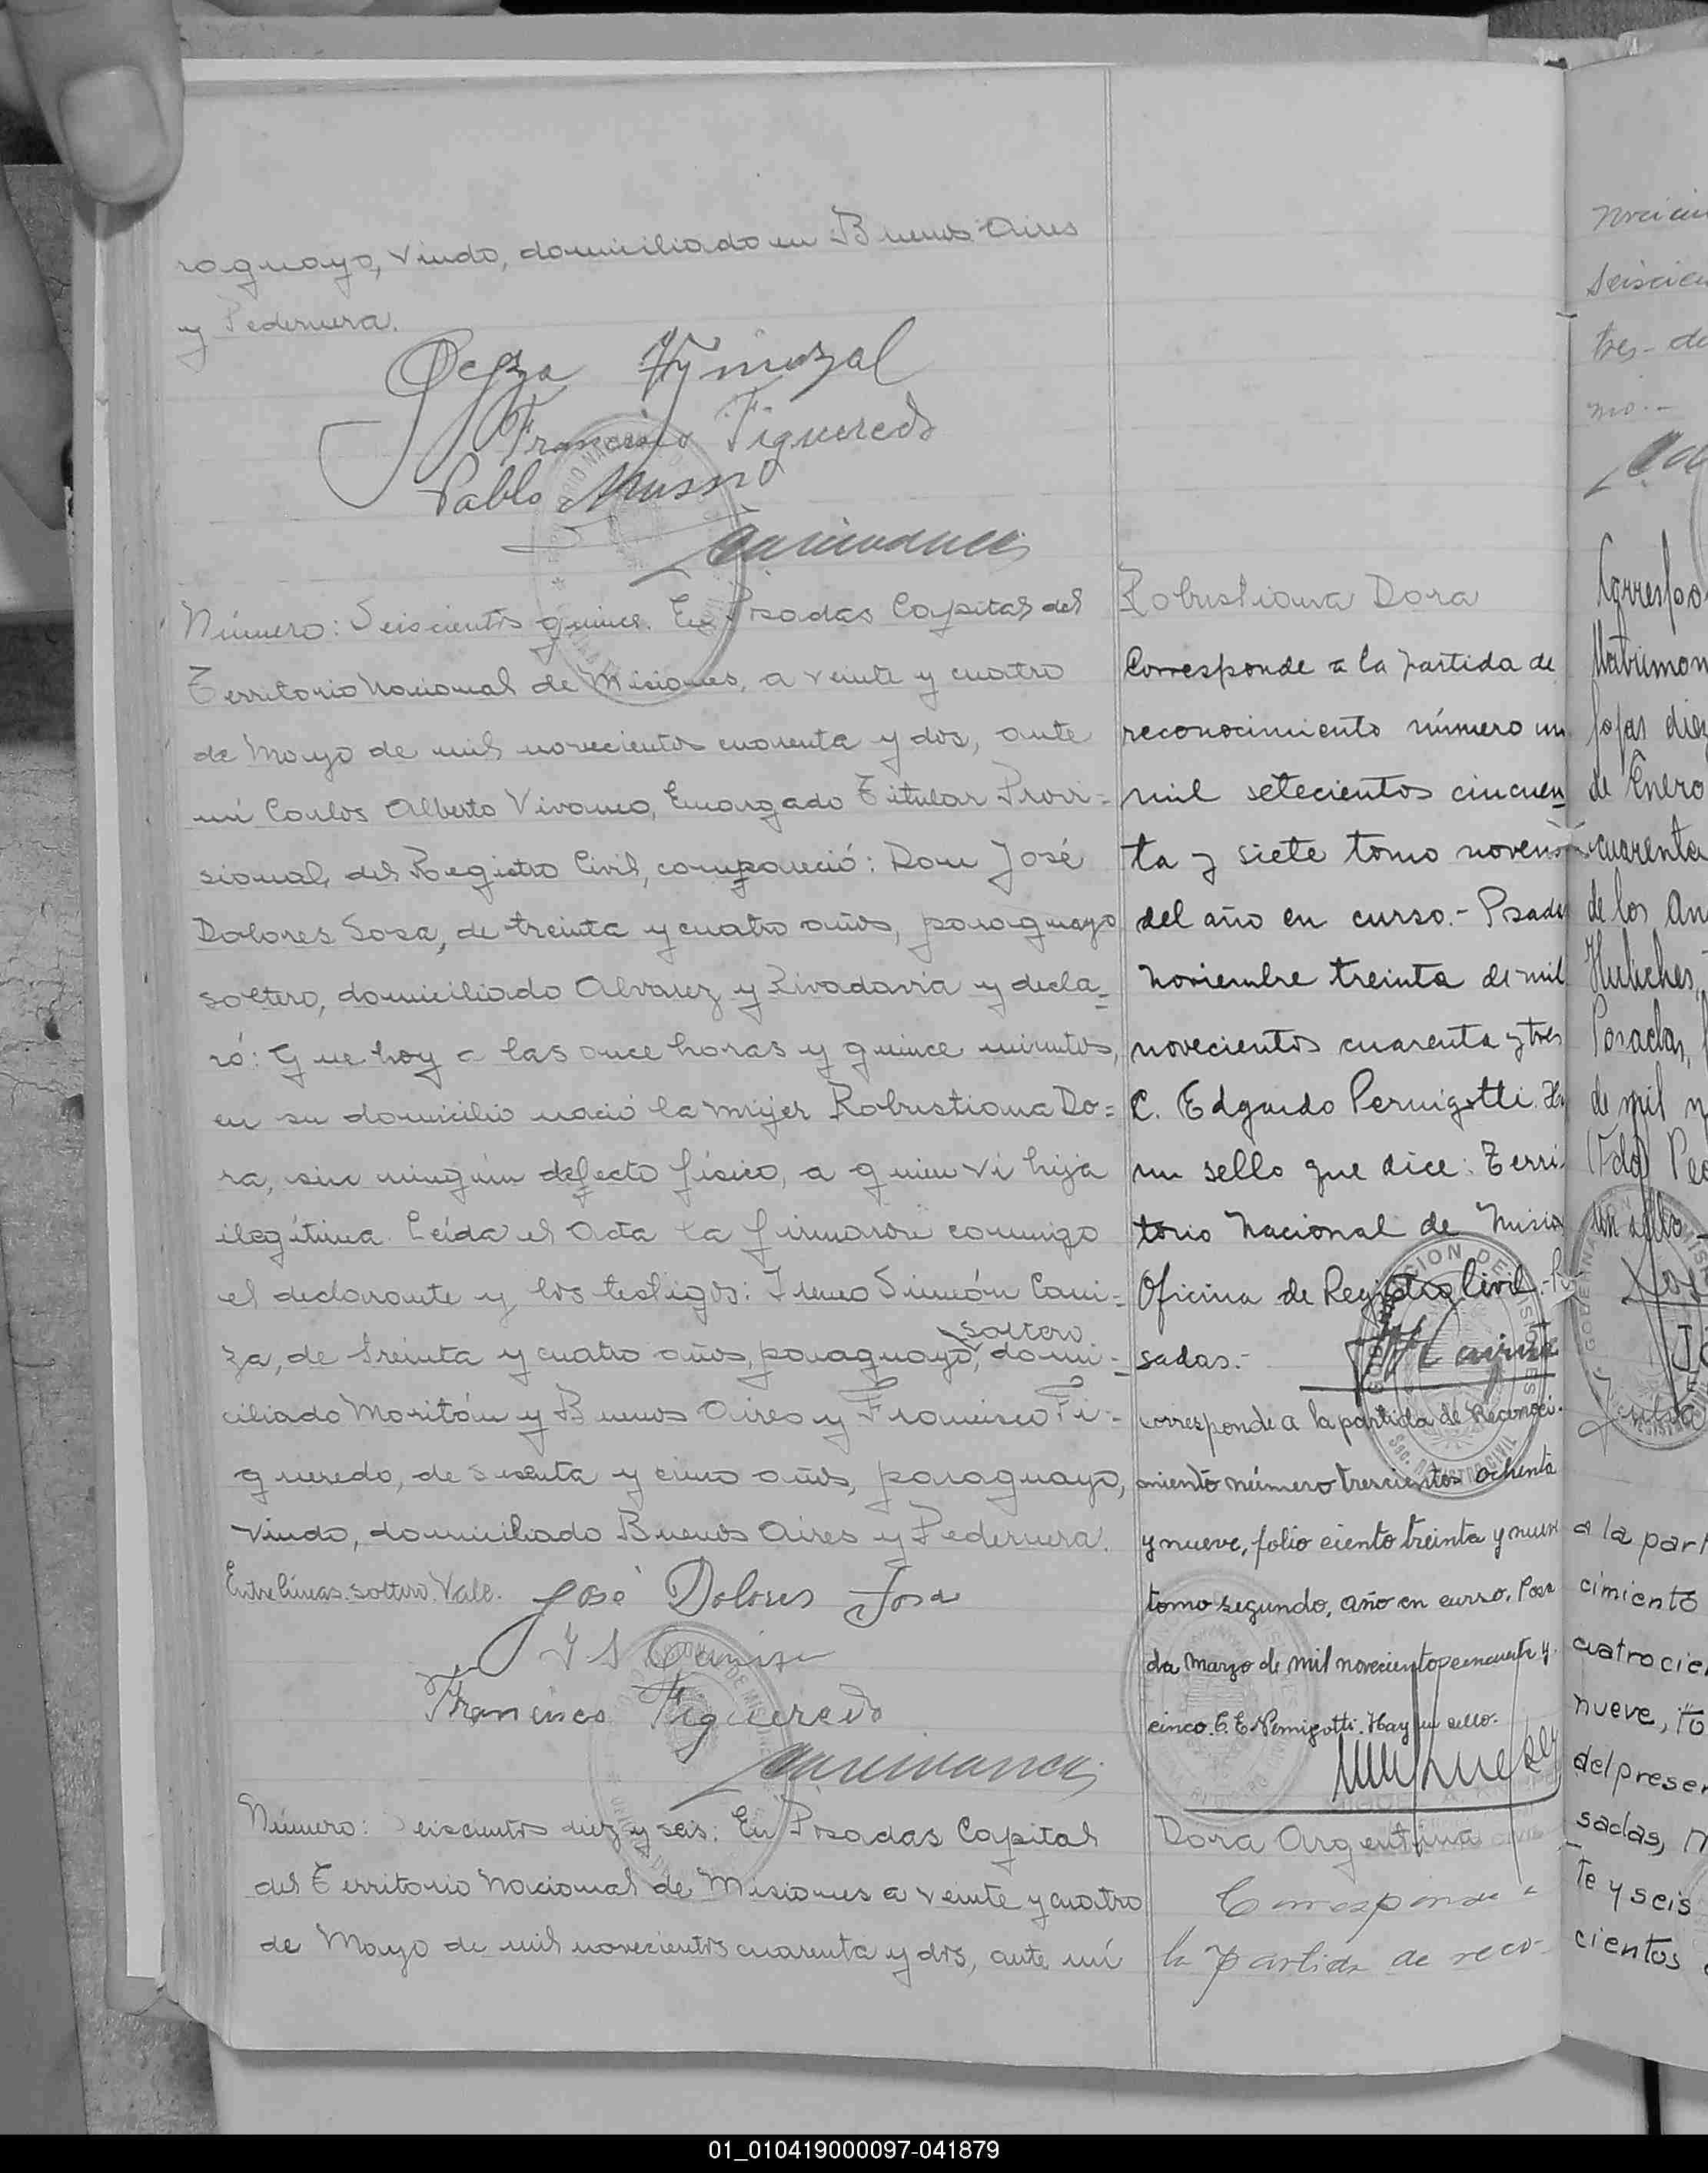 raguayo, viudo, domiciliado en Buenos Aires
y Pedernera.
Francisco Figueredo
Pablo Musso
Número: Seiscientos quince. En Posadas Capital del
Territorio Nacional de Misiones, a veinte y cuatro
de Mayo de mil novecientos cuarenta y dos, ante
mí Carlos Alberto Vivanco, Encargado Titular Provi-
sional del Registro Civil, compareció: Don José
Dolores Sosa, de treinta y cuatro años, paraguayo
soltero, domiciliado Alvarez y Rivadavia y decla-
ró: Que hoy a las once horas y quince minutos,
en su domicilio nació la mujer Robustiana Do-
ra, sin ningún defecto físico, a quien vi hija
ilegítima. Leída el Acta la firmaron conmigo
el declarante y los testigos: Simeón Cañi-
soltero
za, de treinta y cuatro años, paraguayo, domi-
ciliado Moritán y Buenos Aires y Francisco Fi-
gueredo, de sesenta y cinco años, paraguayo,
viudo, domiciliado Buenos Aires y Pedernera.
Entrelíneas. soltero. Vale. José Dolores Sosa
Francisco Figueredo
Número: Seiscientos diez y seis: En Posadas Capital
del Territorio Nacional de Misiones a veinte y cuatro
de Mayo de mil novecientos cuarenta y dos, ante mí
Robustiana Dora
Corresponde a la partida de
reconocimiento número un
mil setecientos cincuen
ta y siete tomo noveno
del año en curso.- Posadas
noviembre treinta de mil
novecientos cuarenta y tres
C. Edgardo Pernigotti. Hay
un sello que dice: Terri-
torio Nacional de Misiones
Oficina de Registro Civil.- Po
sadas.-
corresponde a la partida de Reconoci-
miento número trescientos ochenta
y nueve, folio ciento treinta y nueve
tomo segundo, año en curso. Posa
da Marzo de mil novecientos cincuenta y
cinco. C. E. Pernigotti. Hay un sello.
Dora Argentina
Corresponde a
la partida de reco-
tres de
de Enero
cuarenta
de los An
Posadas,
de mil n
(Fdo)
un sello
a la part
cimiento
cuatrocie
nueve, to
del presen
sadas, M
te y seis
cientos
01_010419000097-041879